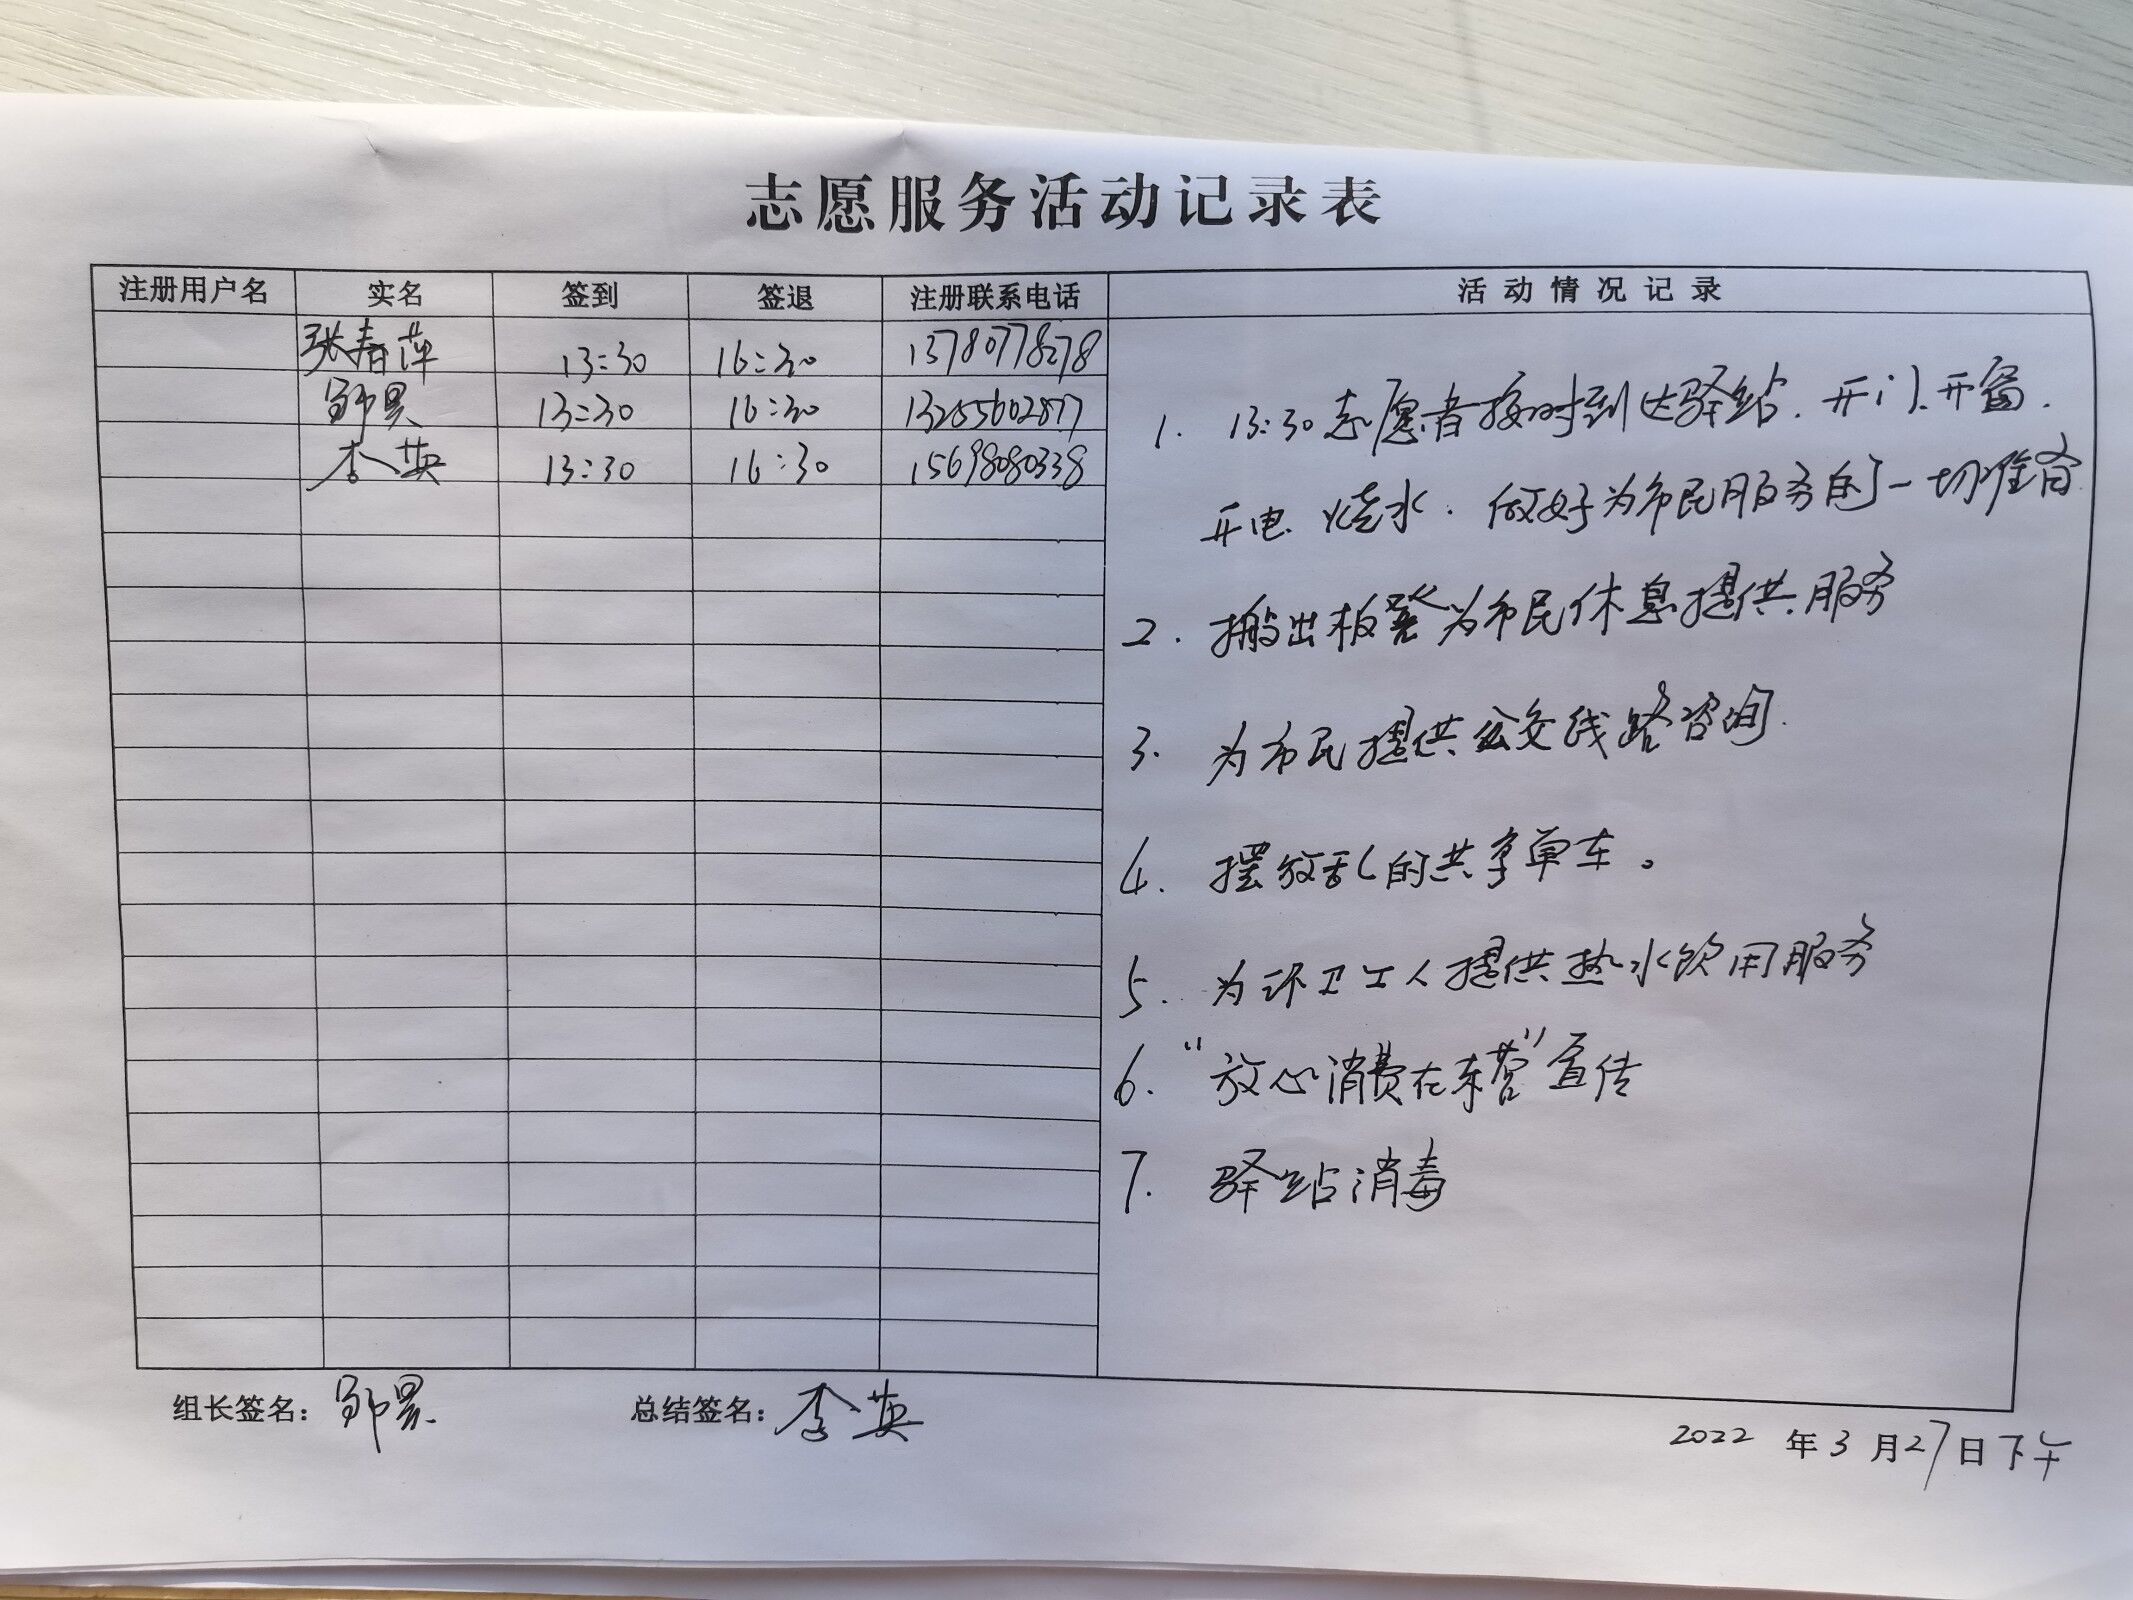 志愿服务活动记录表
注册用户名 实名 签到 签退 注册联系电话 活动情况记录
张春萍 13:30 16:30 13780778278
邹昊 13:30 16:30 13255602877
李英 13:30 16:30 15698080338
1. 13:30志愿者按时到达驿站.开门.开窗.
开电.烧水.做好为市民服务的一切准备
2. 搬出板凳为市民休息提供服务
3. 为市民提供公交线路咨询.
4. 摆放乱的共享单车。
5. 为环卫工人提供热水饮用服务
6. “放心消费在东营”宣传
7. 驿站消毒
组长签名：邹昊 总结签名：李英
2022年3月27日下午